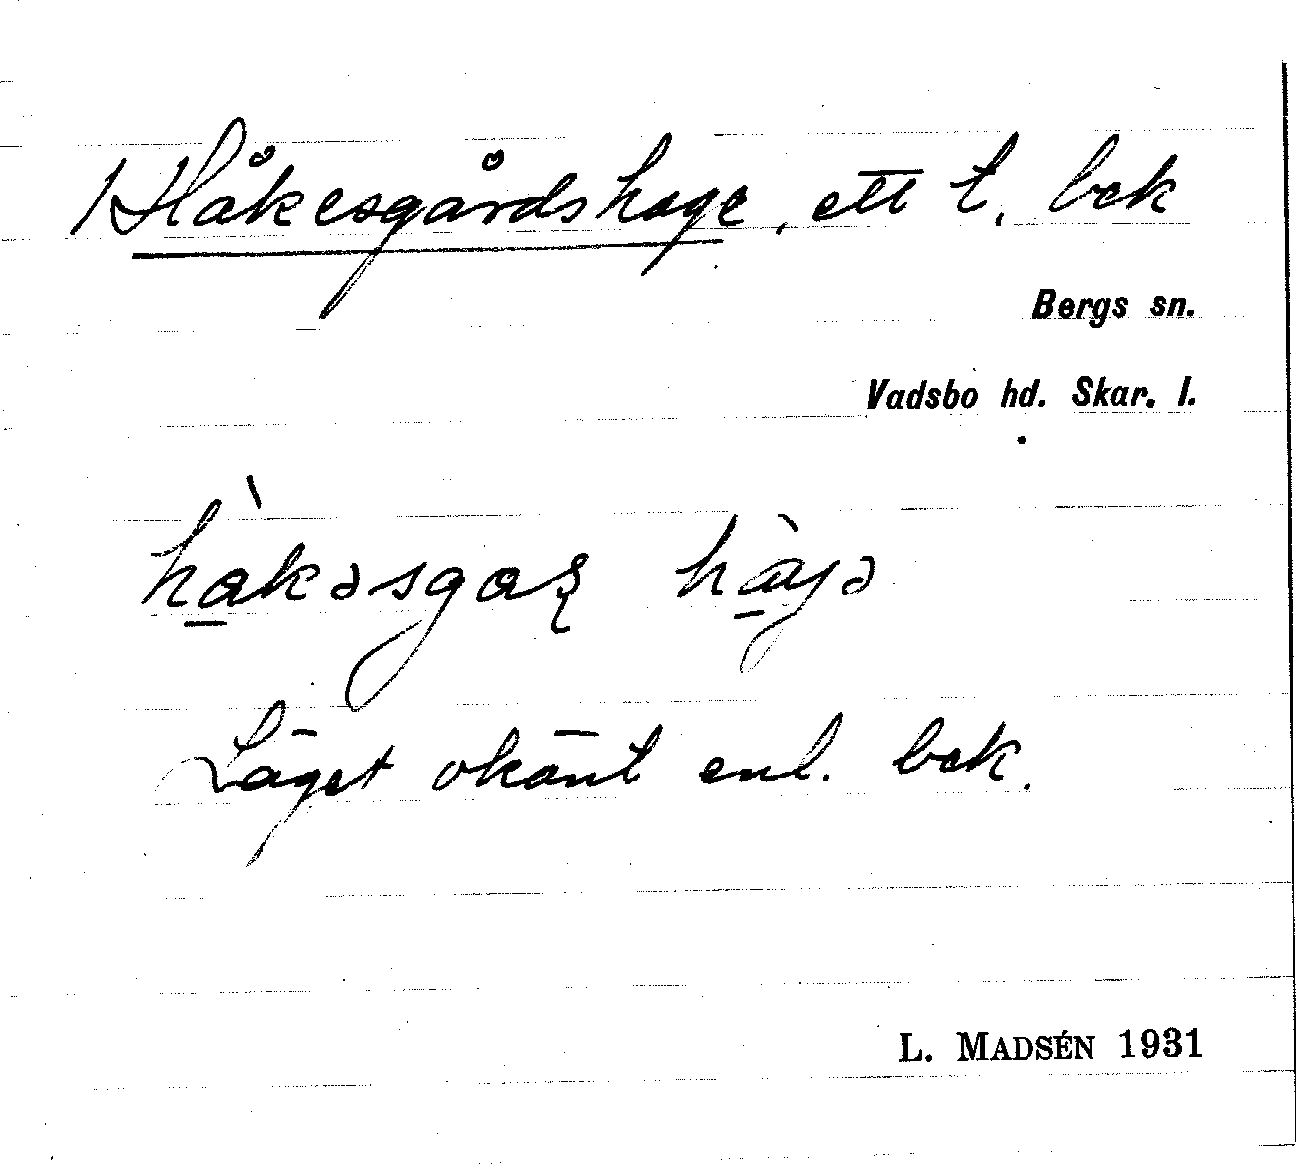 Håkesgårdshage, ett t. bek
Bergs sn.
Vadsbo hd. Skar. l.
hàkəsgaʀ hàɣə
Läget okänt enl. bek.
L. MADSÉN 1931